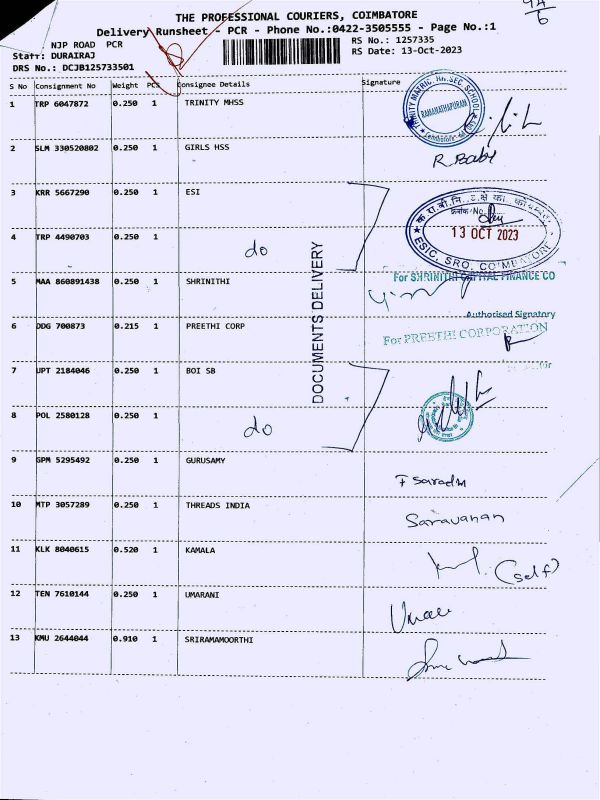 THE PROFESSIONAL COURIERS, COIMBATORE
Delivery Runsheet - PCR - Phone No.:0422-3505555 - Page No.:1
NJP ROAD PCR
RS No.: 1257335
Staff: DURAIRAJ
RS Date: 13-Oct-2023
DRS No.: DCJB125733501
S No Consignment No Weight PCS Consignee Details Signature
1 TRP 6047872 0.250 1 TRINITY MHSS
TRINITY MATRIC HR.SEC SCHOOL
RAMANATHAPURAM
2 SLM 330520802 0.250 1 GIRLS HSS
R Baby
3 KRR 5667290 0.250 1 ESI
13 OCT 2023
ESIC, SRO, COIMBATORE
4 TRP 4490703 0.250 1
do
DOCUMENTS DELIVERY
5 MAA 860891438 0.250 1 SHRINITHI
For SHRINITHI CAPITAL FINANCE CO
Authorised Signatory
6 DDG 700873 0.215 1 PREETHI CORP
For PREETHI CORPORATION
7 UPT 2184046 0.250 1 BOI SB
8 POL 2580128 0.250 1
do
9 GPM 5295492 0.250 1 GURUSAMY
10 MTP 3057289 0.250 1 THREADS INDIA
Saravanan
11 KLK 8040615 0.520 1 KAMALA
(self)
12 TEN 7610144 0.250 1 UMARANI
13 KMU 2644044 0.910 1 SRIRAMAMOORTHI